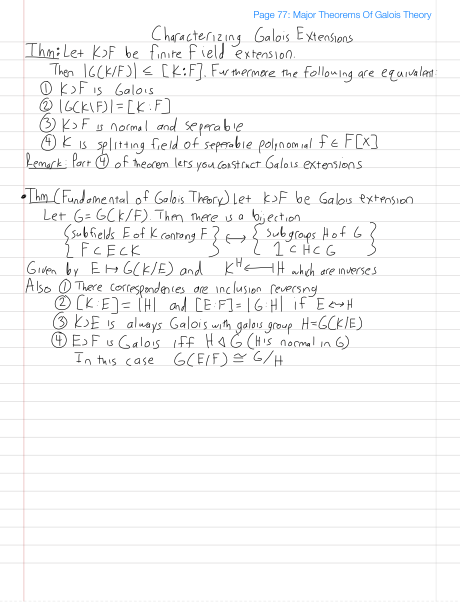 Page 77: Major Theorems Of Galois Theory
Characterizing Galois Extensions
Thm: Let K⊃F be finite field extension.
Then |G(K/F)| ≤ [K:F]. Furthermore the following are equivalent:
① K⊃F is Galois
② |G(K\F)| = [K:F]
③ K⊃F is normal and seperable
④ K is splitting field of seperable polynomial f ∈ F[x]
Remark: Part ④ of theorem lets you construct Galois extensions
• Thm (Fundamental of Galois Theory) Let K⊃F be Galois extension
Let G = G(K/F). Then there is a bijection
{subfields E of K containg F} ↔ {subgroups H of G}
{F ⊂ E ⊂ K} {1 ⊂ H ⊂ G}
Given by E ↦ G(K/E) and K^H ⟻ H which are inverses
Also ① There correspondencies are inclusion reversing
② [K:E] = |H| and [E:F] = |G:H| if E ↔ H
③ K⊃E is always Galois with galois group H = G(K/E)
④ E⊃F is Galois iff H ◁ G (H is normal in G)
In this case G(E/F) ≅ G/H